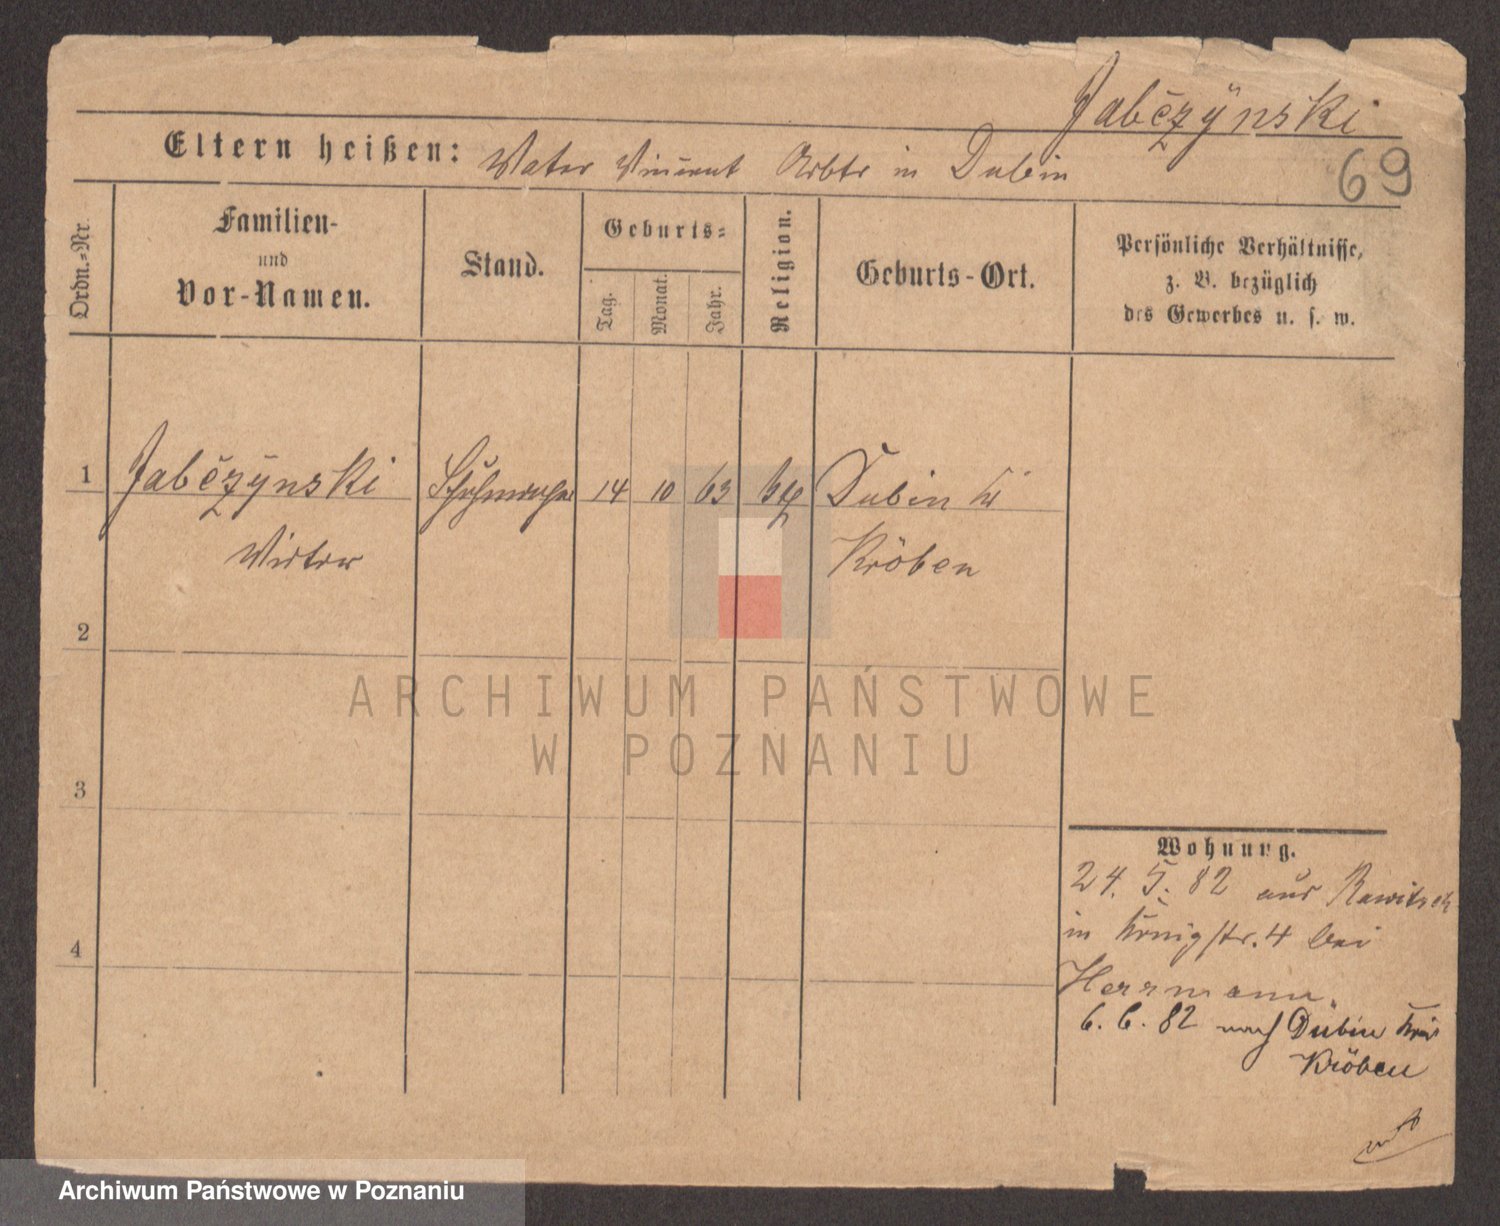 Jabczÿnski
69
Eltern heißen: Vater Vincent Arbtr in Dubin
Ordn.=Nr.
Familien-
und
Vor-Namen.
Stand.
Geburts=
Tag.
Monat.
Jahr.
Religion.
Geburts-Ort.
Persönliche Verhältnisse,
z. B. bezüglich
des Gewerbes u. s. w.
1 Jabczÿnski Schuhmacher 14 10 63 Dubin
Victor Kröben
2
ARCHIWUM PAŃSTWOWE
W POZNANIU
3
Wohnung.
24. 5. 82 aus Rawitsch
in Königstr. 4 bei
4
Herrmann.
6. 6. 82 nach Dubin Kreis
Kröben
Archiwum Państwowe w Poznaniu